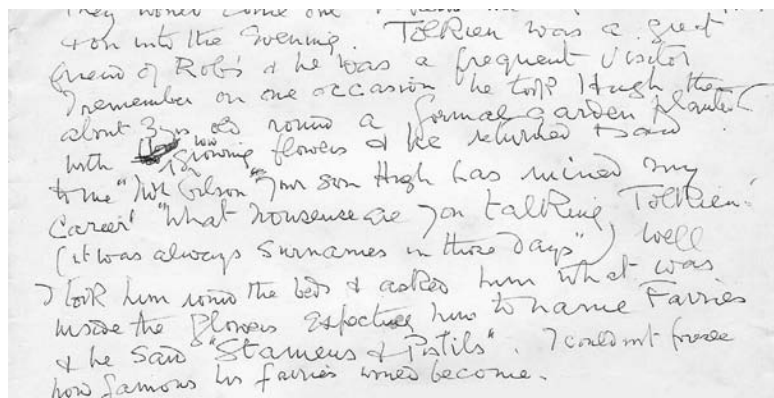 They would come one
& on into the Evening. Tolkien was a great
friend of Rob's & he was a frequent visitor
I remember on one occasion he took Hugh then
about 3 yrs old round a formal garden planted
with low growing flowers & he returned & said
to me "Mrs Gilson" your son Hugh has ruined my
Career! "What nonsense are you talking Tolkien!
(it was always Surnames in those days") Well
I took him round the beds & asked him what was
inside the flowers Expecting him to name Fairies
& he said "Stamens & Pistils". I could not foresee
how famous his fairies would become.